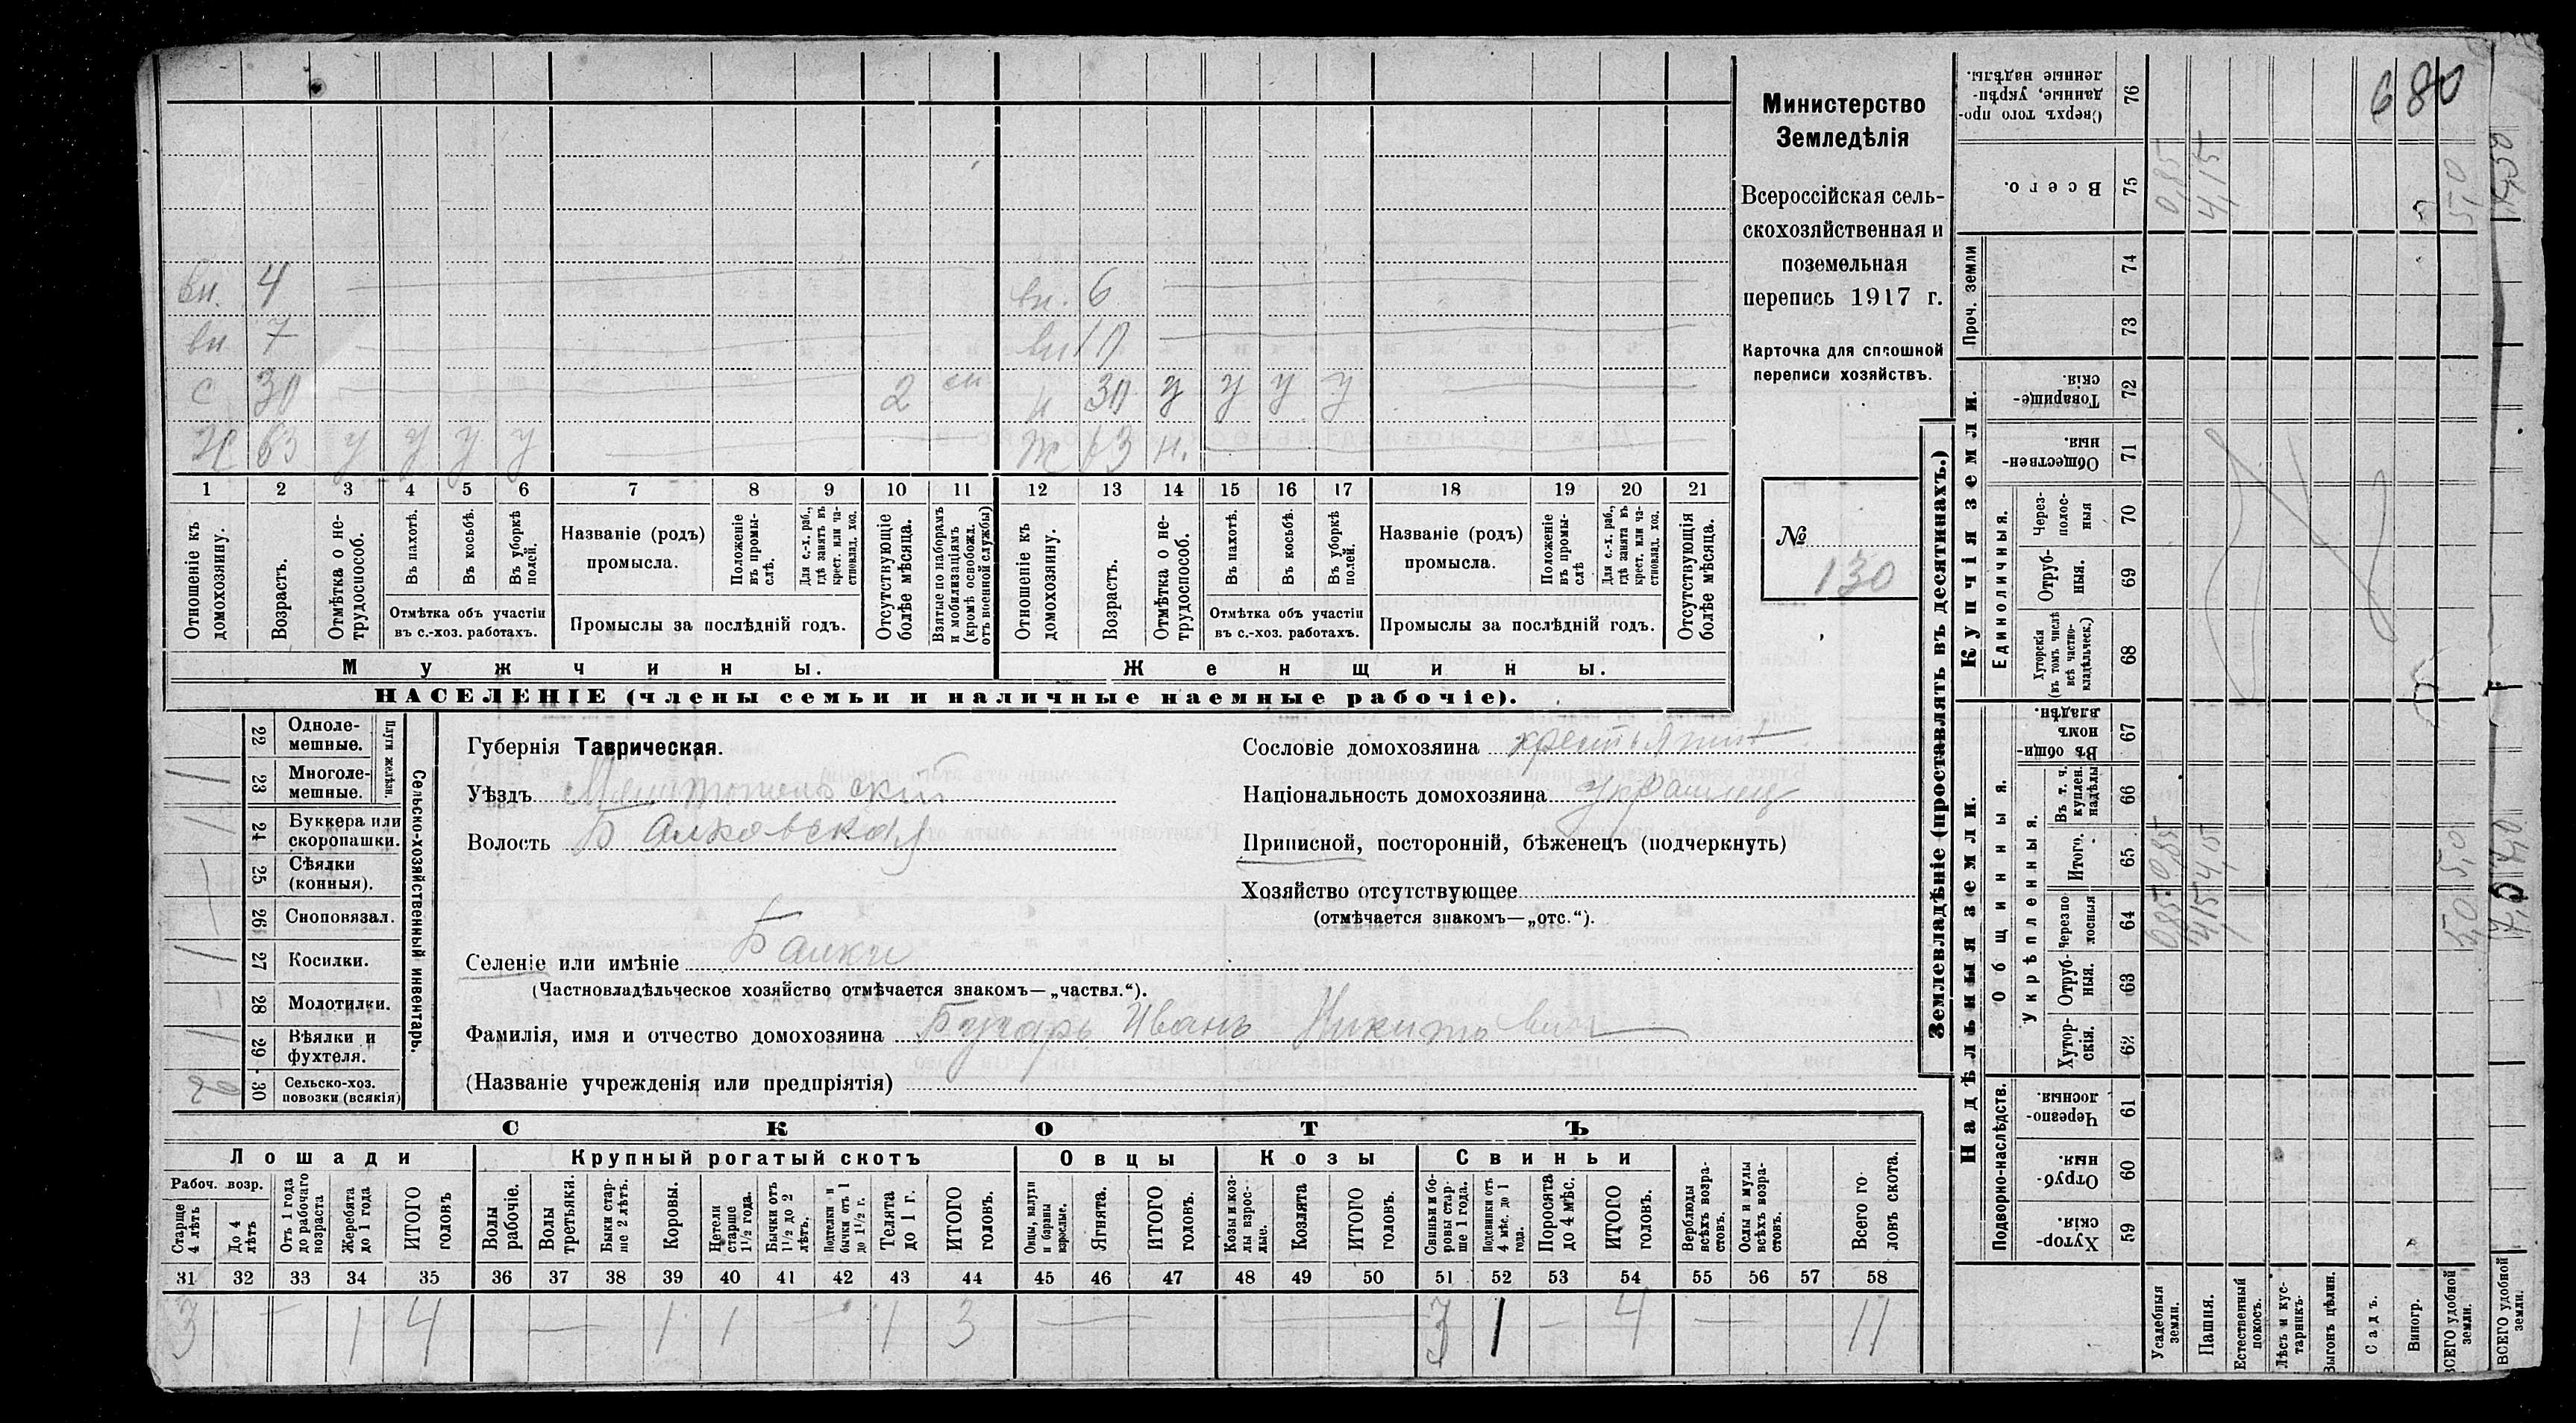 Министерство
Земледѣлія
Всероссійская сель-
скохозяйственная и
поземельная
перепись 1917 г.
Карточка для сплошной
переписи хозяйствъ.
№
130
вн. 4
вн 7
с 30 2
Х 63 у у у у
вн. 6
вн 10
н 30 у у у у
ж 63 н.
1 2 3 4 5 6 7 8 9 10 11 12 13 14 15 16 17 18 19 20 21
Отношеніе къ домохозяину.
Возрастъ.
Отмѣтка о не-трудоспособ.
Въ пахотѣ.
Въ косьбѣ.
Въ уборкѣ полей.
Отмѣтка объ участіи
въ с.-хоз. работахъ.
Названіе (родъ)
промысла.
Положеніе въ промы-слѣ.
Для с.-х. раб., гдѣ занятъ въ крест. или ча-стновлад. хоз.
Промыслы за послѣдній годъ.
Отсутствующіе болѣе мѣсяца.
Взятые по наборамъ и мобилизаціямъ (кромѣ освобожд. отъ военной службы)
Отношеніе къ домохозяину.
Возрастъ.
Отмѣтка о не-трудоспособ.
Въ пахотѣ.
Въ косьбѣ.
Въ уборкѣ полей.
Отмѣтка объ участіи
въ с.-хоз. работахъ.
Названіе (родъ)
промысла.
Положеніе въ промы-слѣ
Для с.-х. раб., гдѣ занята въ крест. или ча-стновлад. хоз.
Промыслы за послѣдній годъ.
Отсутствующія болѣе мѣсяца.
Мужчины.
Женщины.
НАСЕЛЕНІЕ (члены семьи и наличные наемные рабочіе).
Сельско-хозяйственный инвентарь.
Плуги желѣзн.
22 Одноле-мешные.
23 Многоле-мешные.
24 Буккера или скоропашки.
25 Сѣялки (конныя).
26 Сноповязал.
27 Косилки.
28 Молотилки.
29 Вѣялки и фухтеля.
30 Сельско-хоз. повозки (всякія)
Губернія Таврическая.
Уѣздъ Мелитопольскій
Волость Балковская
Сословіе домохозяина крестьянин
Національность домохозяина украинец
Приписной, посторонній, бѣженец (подчеркнуть)
Хозяйство отсутствующее
(отмѣчается знакомъ—„отс.“).
Селеніе или имѣніе Балки
(Частновладѣльческое хозяйство отмѣчается знакомъ—„частвл.“).
Фамилія, имя и отчество домохозяина Бухарь Иванъ Никитович
(Названіе учрежденія или предпріятія)
СКОТЪ
Лошади
Крупный рогатый скотъ
Овцы
Козы
Свиньи
Рабоч. возр.
Старше 4 лѣтъ
До 4 лѣтъ
Отъ 1 года до рабочаго возраста
Жеребята до 1 года
ИТОГО головъ
Волы рабочіе.
Волы третьяки.
Быки стар-ше 2 лѣтъ.
Коровы.
Нетели старше 1½ года.
Бычки отъ 1½ до 2 лѣтъ.
Подтелки и бычки отъ 1 до 1½ г.
Телята до 1 г.
ИТОГО головъ.
Овцы, валухи и бараны взрослые.
Ягнята.
ИТОГО головъ.
Козы и коз-лы взрос-лые.
Козлята
ИТОГО головъ.
Свиньи и бо-ровы стар-ше 1 года.
Подсвинки отъ 4 мѣс. до 1 года.
Поросята до 4 мѣс.
ИТОГО головъ.
Верблюды всѣхъ возра-стовъ.
Ослы и мулы всѣхъ возра-стовъ.
Всего го-ловъ скота.
31 32 33 34 35 36 37 38 39 40 41 42 43 44 45 46 47 48 49 50 51 52 53 54 55 56 57 58
3 – 1 4 — 1 1 – 1 3 — — 3 1 – 4 — 11
Землевладѣніе (проставлять въ десятинахъ.)
Купчія земли.
Надѣльныя земли.
Сверхъ того про-данные, укрѣп-ленные надѣлы. 76
Всего. 75
Проч. земли
74
73
Товарище-скія. 72
Обществен-ныя. 71
Единоличныя.
Через-полос-ныя 70
Отруб-ныя. 69
Хуторскія (въ томъ числѣ всѣ частно-владѣльческ.) 68
Общинныя.
Въ общи-номъ владѣн. 67
Укрѣпленныя.
Въ т. ч. куплен. надѣлы 66
Итого. 65
Черезпо лосныя 64
Отруб-ныя. 63
Хутор-скія. 62
Подворно-наслѣдств.
Черезпо-лосныя. 61
Отруб-ныя. 60
Хутор-скія. 59
Усадебныя земли.
Пашня.
Естественный покосъ.
Лѣсъ и кус-тарникъ.
Выгонъ цѣлин.
Садъ.
Виногр.
ВСЕГО удобной земли.
ВСЕГО удобной земли.
680
0,85
4,15
5,0
0,85 0,85
4,15 4,15
5,0 5,0